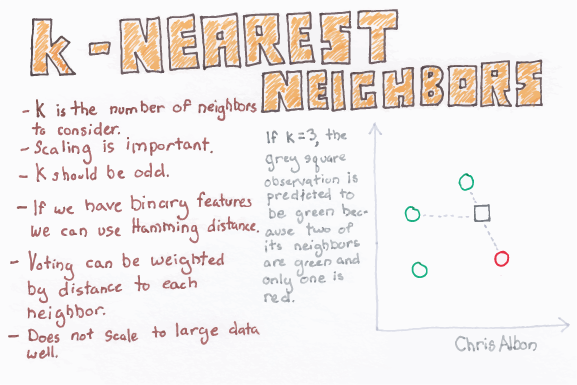 k-NEAREST
NEIGHBORS
- K is the number of neighbors
to consider.
- Scaling is important.
- K should be odd.
- If we have binary features
we can use Hamming distance.
- Voting can be weighted
by distance to each
neighbor.
- Does not scale to large data
well.
If k=3, the
grey square
observation is
predicted to
be green bec-
ause two of
its neighbors
are green and
only one is
red.
Chris Albon